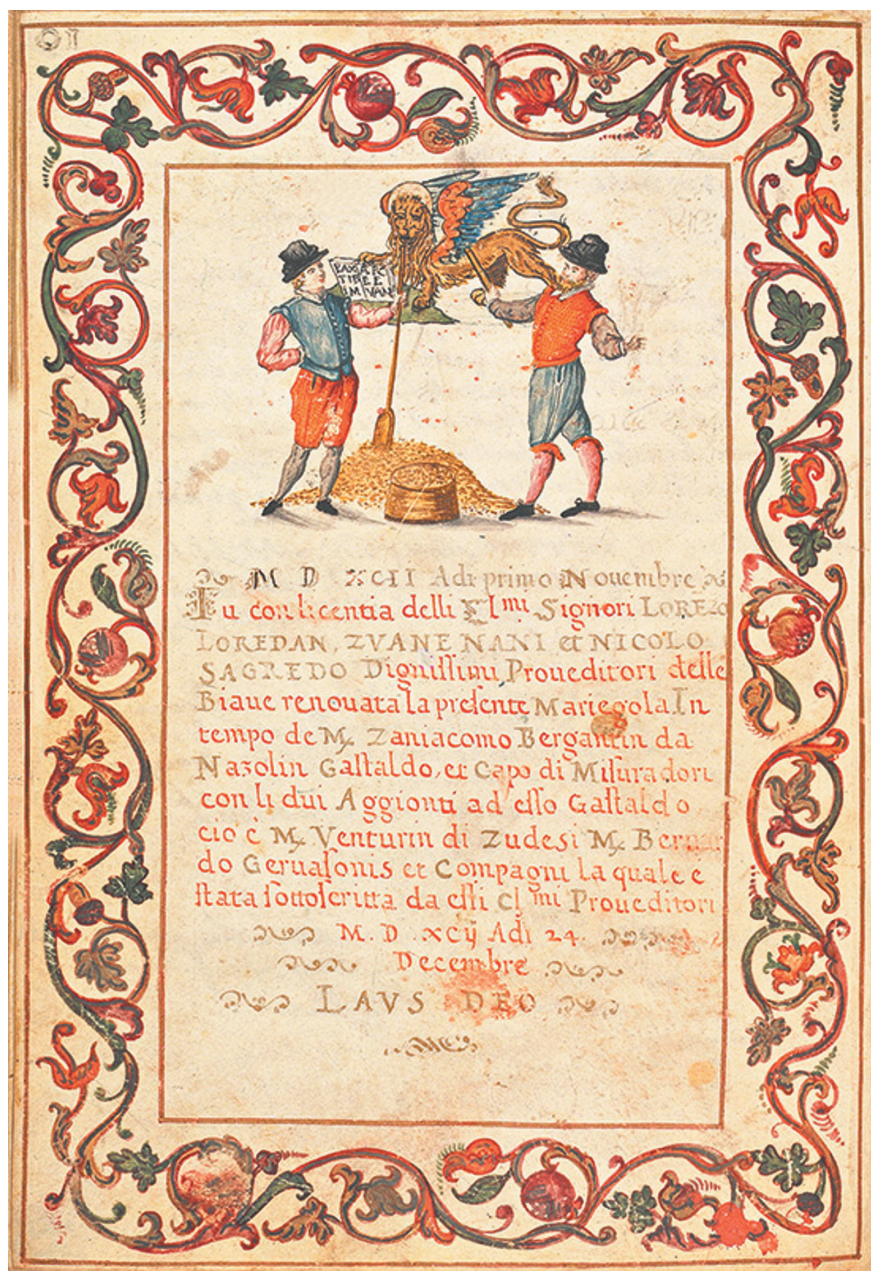 PAX
TIBI
M
M D XCII Adi primo Nouembre
Fu con licentia delli Cl.mi Signori LOREZO
LOREDAN, ZVANE NANI et NICOLO
SAGREDO Dignissimi Proueditori delle
Biaue renouata la presente Mariegola In
tempo de Mr. Zaniacomo Bergantin da
Nazolin Gastaldo, et Capo di Misuradori
con li dui Aggionti ad esso Gastaldo
cio è Mr. Venturin di Zudesi Mr. Bernar
do Geruasonis et Compagni la quale e
stata sottoscritta da essi Cl.mi Proueditori
M. D. XCij Adi 24.
Decembre
LAVS DEO